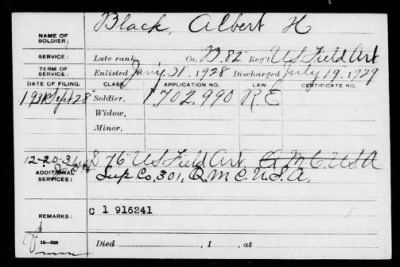 NAME OF SOLDIER: Black, Albert H
SERVICE: Late rank, Co. D. 82" Reg't US Field Art
TERM OF SERVICE: Enlisted 21" 1928 Discharged July 19, 1929
DATE OF FILING. CLASS. APPLICATION NO. LAW. CERTIFICATE NO.
1931 Sept 28" Soldier, 1702.990 R.E
Widow,
Minor,
12-20-31 D 76 US Field Art. Q.M.C. USA
ADDITIONAL SERVICES: Sup Co. 301, Q.M.C. U.S.A.
REMARKS: C 1 916241
Died , 1 , at